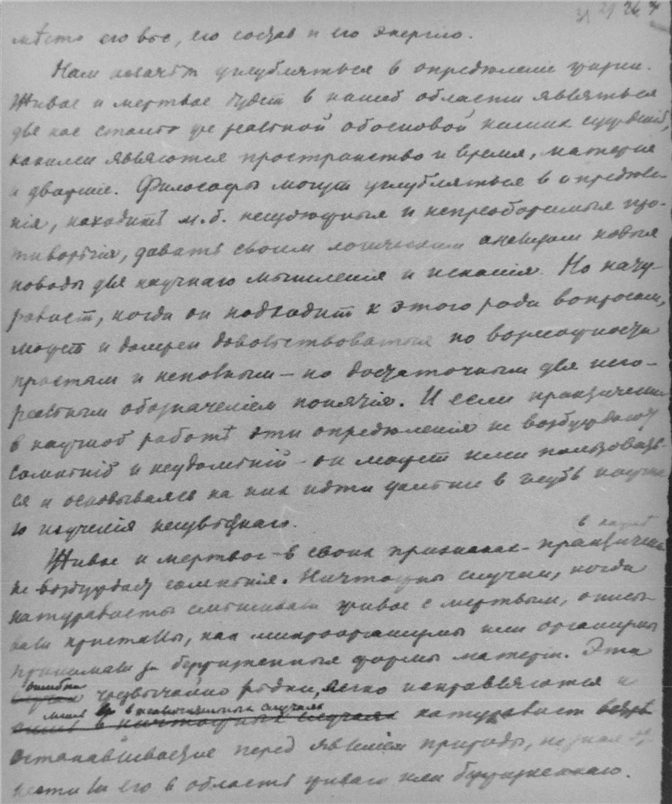 31 21 26
мѣсто его вѣс, его состав и его энергію.
Нам незачѣм углубляться в опредѣленіе жизни.
Живое и мертвое будет в нашей области являться
для нас столь же реальной основой наших сужденій
какими являются пространство и время, матерія
и движеніе. Философы могут углубляться в опредѣле-
нія, находить м. б. неизбѣжныя и непреоборимыя про-
тиворѣчія, давать своим логическим анализом новые
поводы для научнаго мышленія и исканія. Но нату-
ралист, когда он подходит к этого рода вопросам,
может и должен довольствоваться по возможности
простым и неполным – но достаточным для него –
реальным обозначеніем понятія. И если практически
в научной работѣ эти опредѣленія не возбуждают
сомнѣній и недоумѣній – он может ими пользовать-
ся и основываясь на них идти дальше в глубь научна-
го изученія неизвѣднаго.
Живое и мертвое – в своих признаках – практически
не возбуждает сомнѣнія. Ничтожны случаи, когда
натуралисты смѣшивали живое с мертвым, описы-
вали кристаллы, как микроорганизмы или организмы
принимали за безжизненныя формы матеріи. Эти
ошибки чрезвычайно рѣдки, легко исправляются и
лишь в исключительных случаях натуралист
останавливается перед явленіем природы, не зная
нести ли его в область живаго или безжизненнаго.